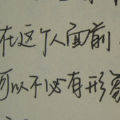 在这个人面前
可以不必有形象